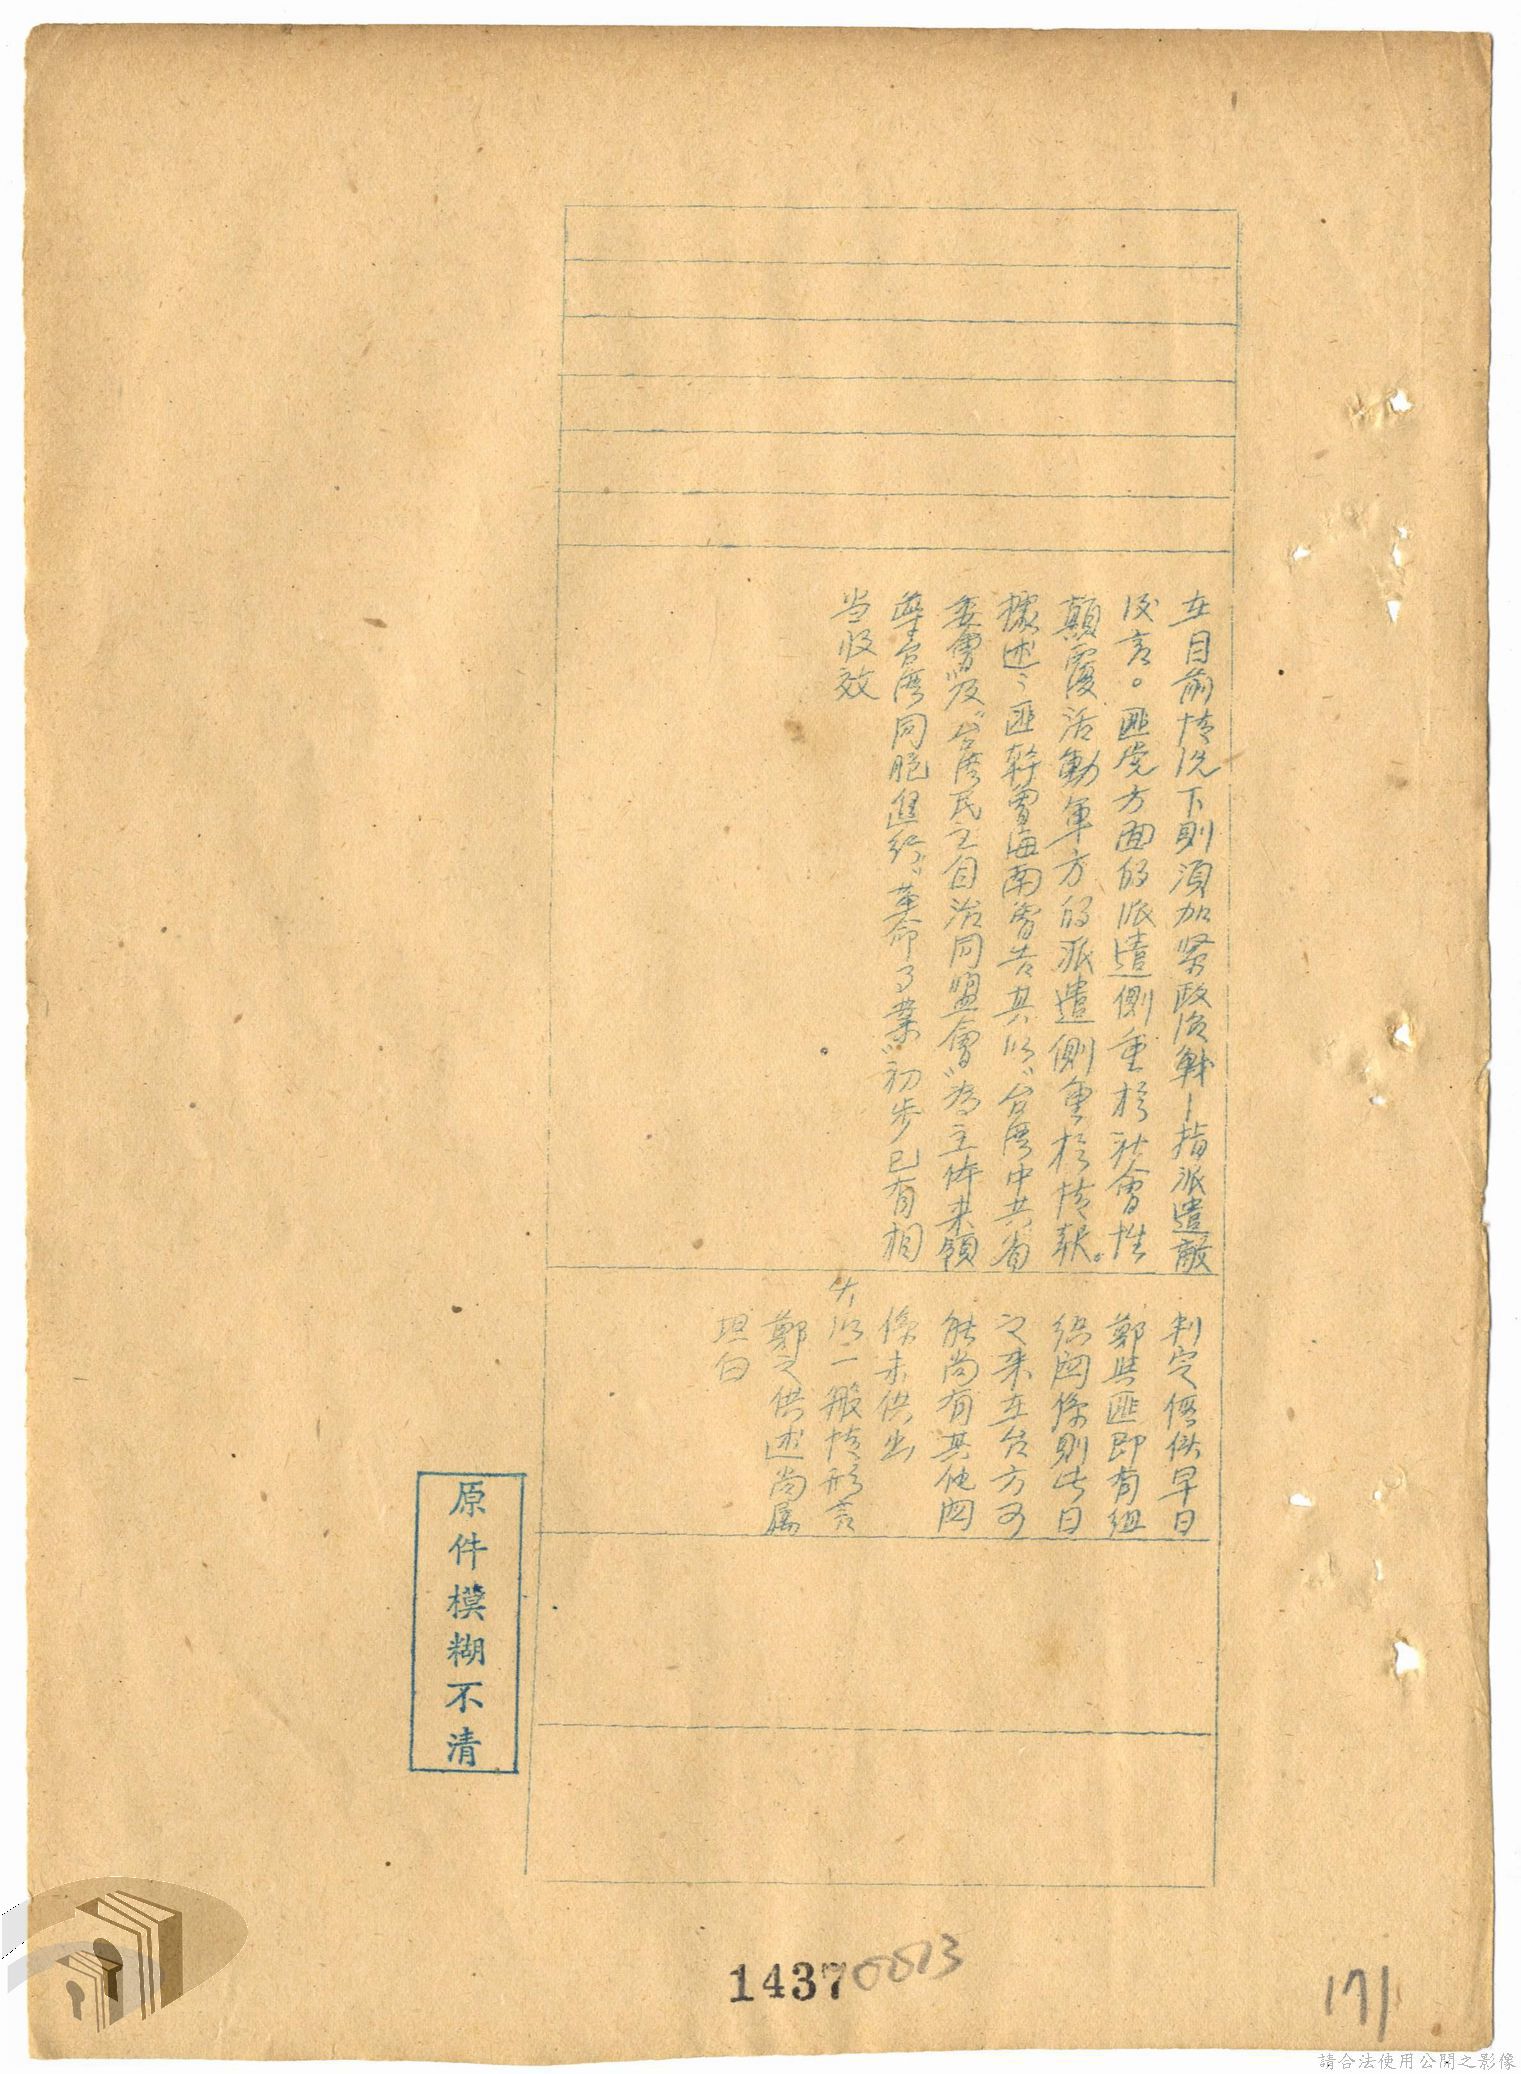 在目前情況下則須加緊政治戰—指派遣敵
後言。匪党方面的派遣側重於社會性
顛覆活動軍方的派遣側重於情報。
據述：匪幹曾海南曾告其以“台湾中共省
委會”及“台湾民主自治同盟會”為主体来領
導台湾同胞進行“革命事業”初步已有相
当收效
判定偽供早日
鄭與匪即有組
織関係則此日
之来在台方可
能尚有其他関
係未供出
以一般情形言
鄭之供述尚属
坦白
原件模糊不清
1437
0013
171
請合法使用公開之影像